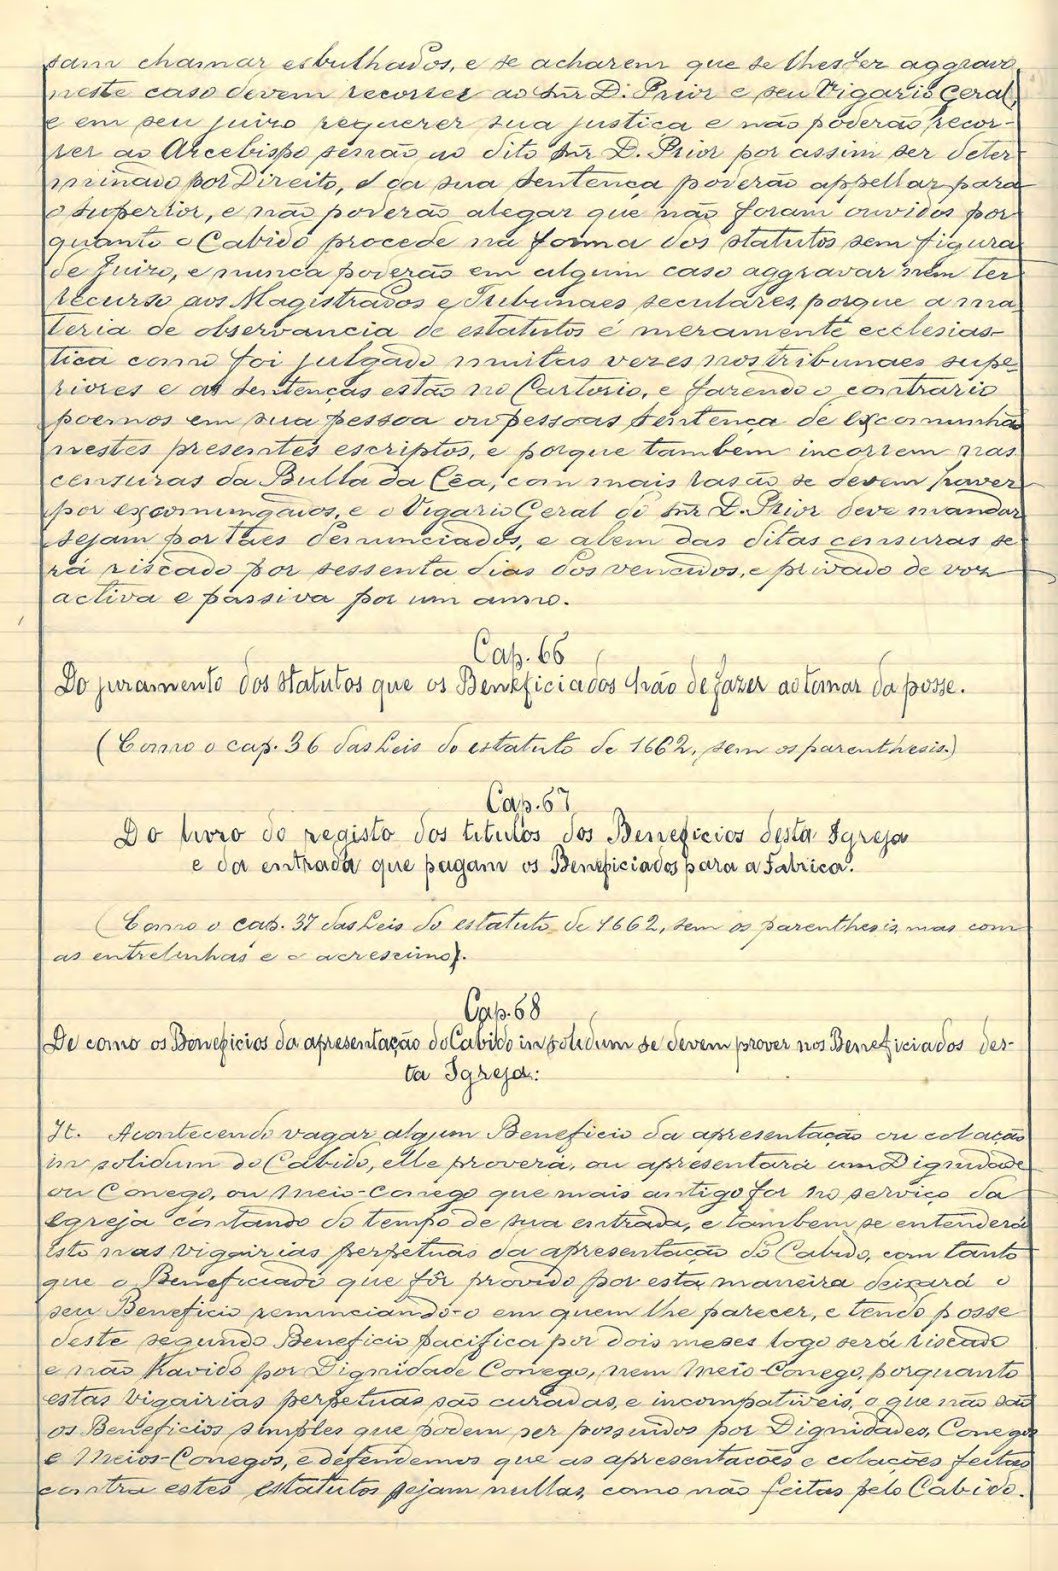 sam chamar esbulhados, e se acharem que se lhes fez aggravo
neste caso devem recorrer ao Snr D. Prior e seu Vigario Geral,
e em seu juizo requerer sua justiça e não poderão recor-
rer ao Arcebispo senão ao dito Snr D. Prior por assim ser deter-
minado por Direito, e da sua sentença poderão appellar para
o superior, e não poderão alegar que não foram ouvidos por
quanto o Cabido procede na forma dos statutos sem figura
de Juizo, e nunca poderão em algum caso aggravar nem ter
recurso aos Magistrados e Tribunaes seculares, porque a ma-
teria de observancia de estatutos é meramente ecclesias-
tica como foi julgado muitas vezes nos tribunaes supe-
riores e as sentenças estão no Cartorio, e fazendo o contrario
poemos em sua pessoa ou pessoas sentença de excomunhão
nestes presentes escriptos, e porque tambem incorrem nas
censuras da Bulla da Cêa, com mais rasão se devem haver
por excomungados, e o Vigario Geral do Snr D. Prior deve mandar
sejam por taes denunciados, e alem das ditas censuras se-
rá riscado por sessenta dias dos vencidos, e privado de voz
activa e passiva por um anno.
Cap. 66
Do juramento dos statutos que os Beneficiados hão de fazer ao tomar da posse.
(Como o cap. 36 das Leis do estatuto de 1662, sem os parenthesis.)
Cap. 67
Do livro do registo dos titulos dos Beneficios desta Igreja
e da entrada que pagam os Beneficiados para a Fabrica.
(Como o cap. 37 das Leis do estatuto de 1662, sem os parenthesis, mas com
as entrelinhas e o acrescimo).
Cap. 68
De como os Beneficios da apresentação do Cabido in solidum se devem prover nos Beneficiados des-
ta Igreja:
It. Acontecendo vagar algum Beneficio da apresentação ou colação
in solidum do Cabido, elle proverá, ou apresentará um Dignidade
ou Conego, ou Meio-Conego que mais antigo for no serviço da
Egreja contando do tempo de sua entrada, e tambem se entenderá
isto nas vigairias perpetuas da apresentação do Cabido, com tanto
que o Beneficiado que fôr provido por esta maneira deixará o
seu Beneficio renunciando-o em quem lhe parecer, e tendo posse
deste segundo Beneficio pacifica por dois meses logo será riscado
e não havido por Dignidade Conego, nem Meio-Conego, porquanto
estas vigairias perpetuas são curadas, e incompativeis, o que não são
os Beneficios simples que podem ser possuidos por Dignidades, Conegos
e Meios-Conegos, e defendemos que as apresentacões e colações feitas
contra estes estatutos sejam nullas, como não feitas pelo Cabido.